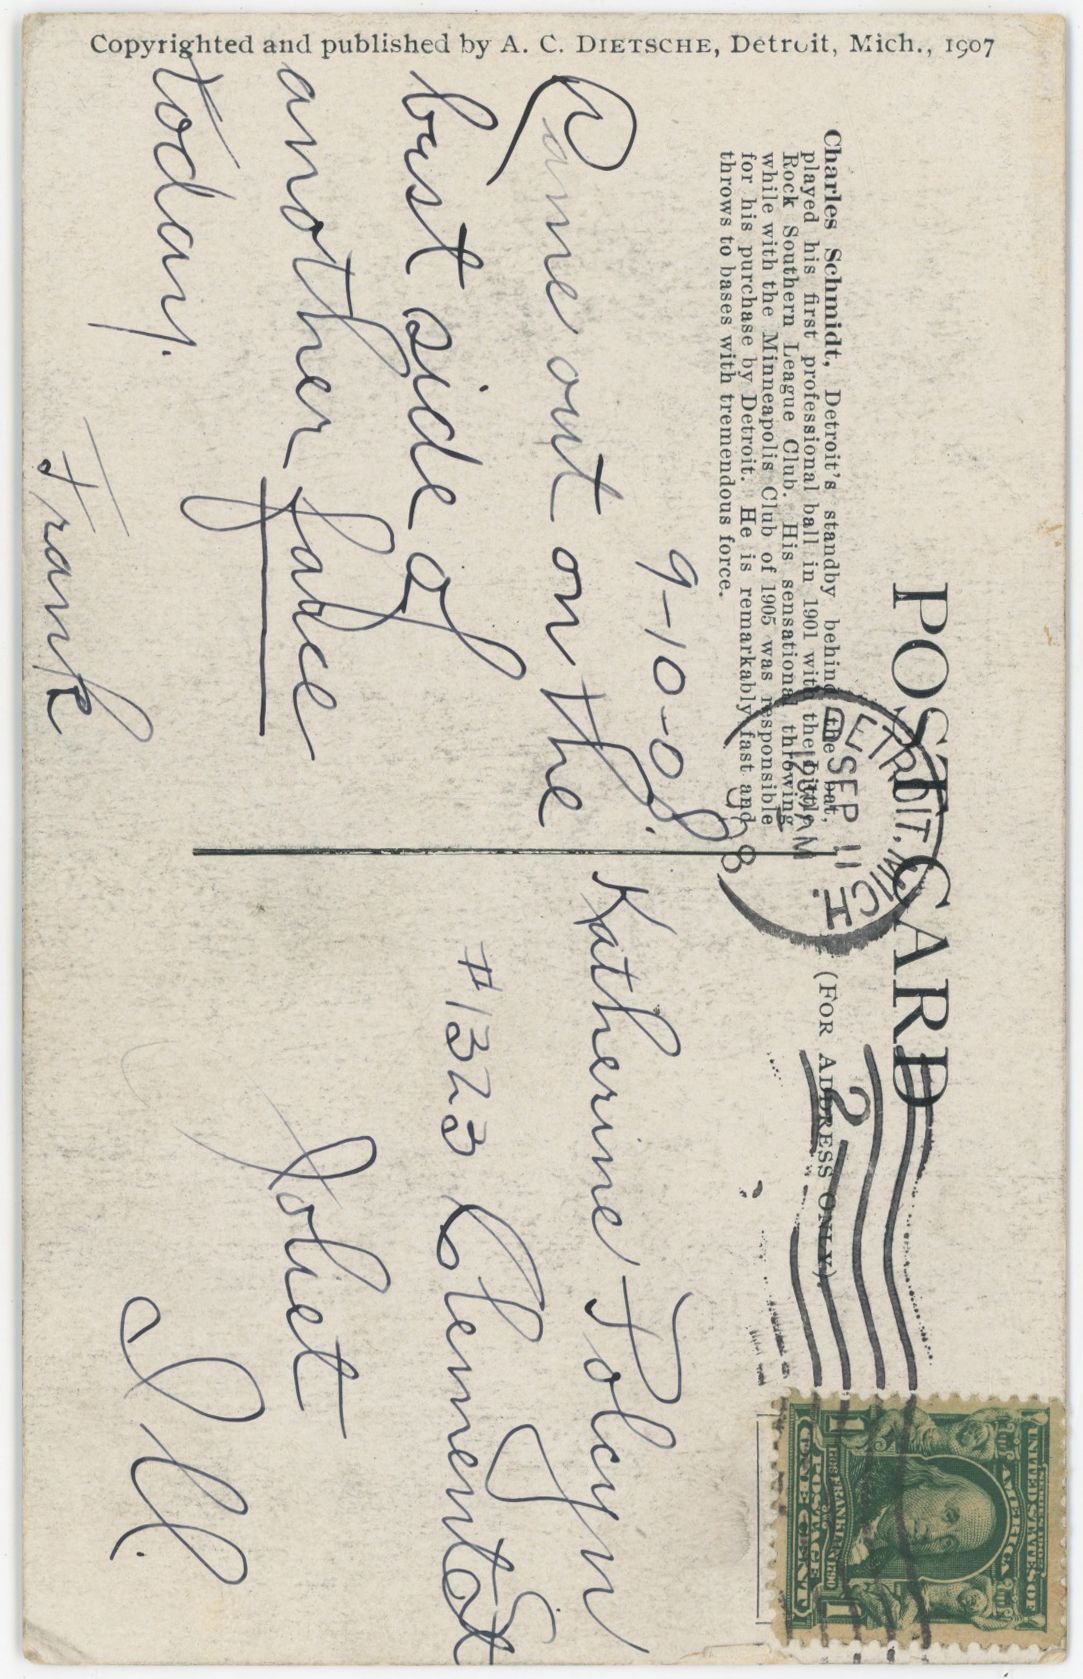 Copyrighted and published by A. C. DIETSCHE, Detroit, Mich., 1907
POST CARD
(FOR ADDRESS ONLY)
Charles Schmidt, Detroit's standby behind the bat,
played his first professional ball in 1901 with the Little
Rock Southern League Club. His sensational throwing
while with the Minneapolis Club of 1905 was responsible
for his purchase by Detroit. He is remarkably fast and
throws to bases with tremendous force.
DETROIT, MICH.
SEP 11
1230 AM
2
9-10-08.
Came out on the
best side of
another
today.
Frank
Katherine Tolczyn
#1323 Clement St
Joliet
Ill.
SERIES 1902
UNITED STATES OF
AMERICA
1706 FRANKLIN 1790
POSTAGE
1 ONE CENT 1